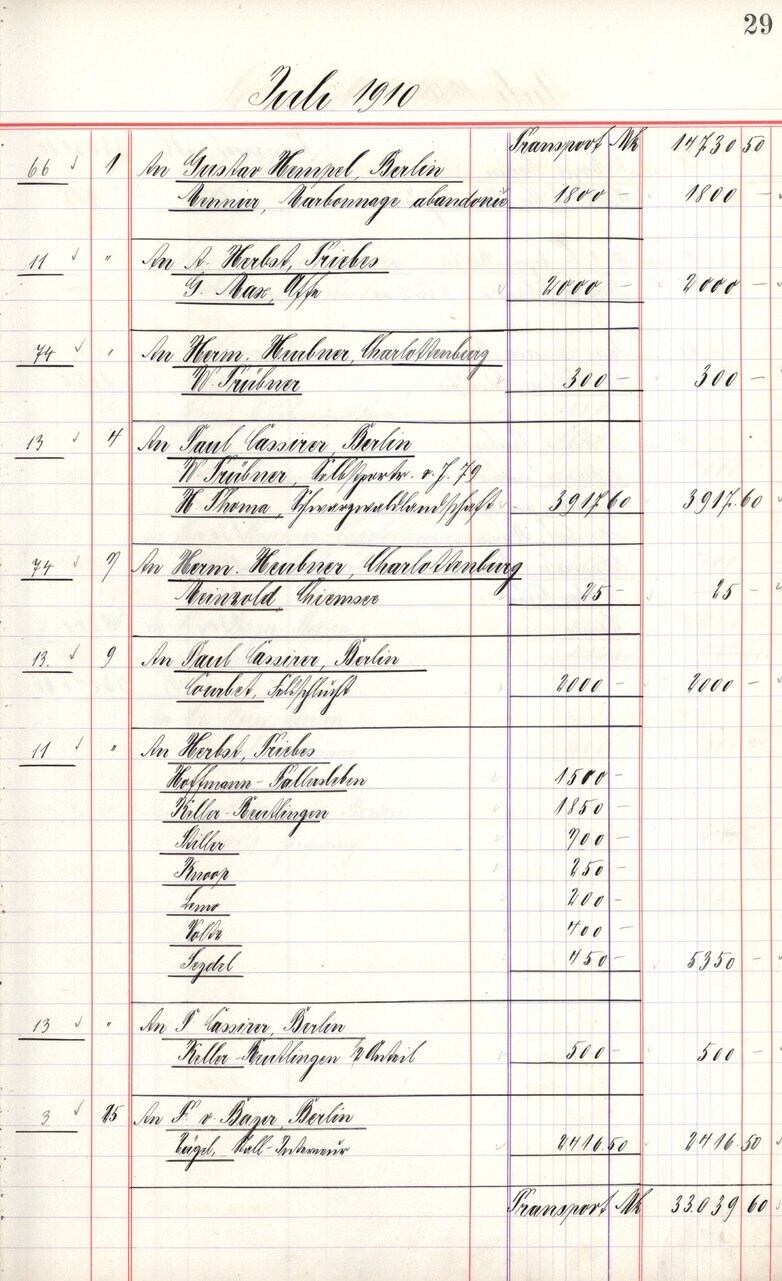 29
Juli 1910
Transport Mk 14730 50
66 1 An Gustav Hempel, Berlin
Mennier, abandonné 1800 – 1800 –
11 " An A. Herbst, Triebes
G. Max, Affe 2000 – 2000 –
74 " An Herm. Heubner, Charlottenburg
W. Trübner 300 – 300 –
13 4 An Paul Cassirer, Berlin
W. Trübner, Selbstportr. v. J. 79
H Thoma, Schwarzwaldlandschaft 3917 60 3917.60
74 7 An Herm. Heubner, Charlottenburg
Meinzold, Chiemsee 25 – 25 –
13. 9 An Paul Cassirer, Berlin
Courbet, Felsschlucht 2000 – 2000 –
11 " An Herbst, Triebes
Hoffmann-Fallersleben 1500 –
Keller-Reutlingen 1850 –
Stiller 700 –
Knoop 250 –
200 –
400 –
Seydel 450 – 5350 –
13 " An P Cassirer, Berlin
Keller-Reutlingen ½ Anteil 500 – 500 –
3 25 An F. v. Bayer, Berlin
Zügel, Stall-Interieur 2416.50 2416.50
Transport Mk 33.039 60